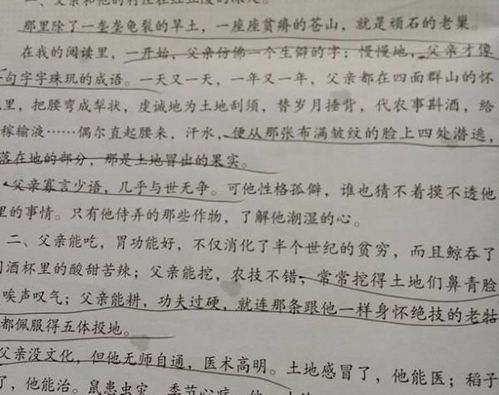 一、父亲和他的村庄在红豆放的深处。
那里除了一垄垄龟裂的旱土，一座座贫瘠的苍山，就是顽石的老巢。
在我的阅读里，一开始，父亲仿佛一个生僻的字；慢慢地，父亲才像
句字字珠玑的成语。一天又一天，一年又一年，父亲都在四面群山的怀
里，把腰弯成犁状，虔诚地为土地刮须，替岁月捶背，代农事斟酒，给
稼输液……偶尔直起腰来，汗水，便从那张布满皱纹的脸上四处潜逃，
落在地的部分，那是土地冒出的果实。
父亲寡言少语，几乎与世无争。可他性格孤僻，谁也猜不着摸不透他
里的事情。只有他侍弄的那些作物，了解他潮湿的心。
二、父亲能吃，胃功能好，不仅消化了半个世纪的贫穷，而且鲸吞了
酒杯里的酸甜苦辣；父亲能挖，农技不错，常常挖得土地们鼻青脸
唉声叹气；父亲能耕，功夫过硬，就连那条跟他一样身怀绝技的老牯
都佩服得五体投地。
父亲没文化，但他无师自通，医术高明。土地感冒了，他能医；稻子
了，他能治。鼠患虫害，季节心疼，他